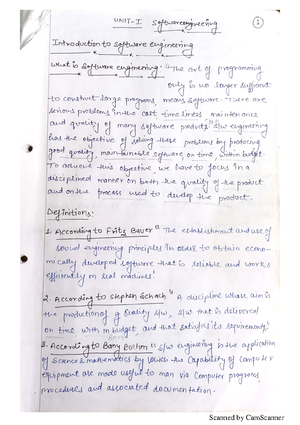 UNIT-I Software engineering
1
Introduction to software engineering
What is Software engineering - "The art of programing
Only is no longer sufficient
to construct large programs, means software. There are
serious problems in the cost timeliness maintenance
and quality of many software products" S/w engineering
has the objective of solving these problems by producing
good quality, maintainable software on time, within budget.
To achieve this objective we have to focus in a
disciplined manner on both the quality of the product
and on the process used to develop the product.
Definitions:
1. According to Fritz Bauer " The establishment and use of
sound engineering principles in order to obtain econo-
mically developed software that is reliable and works
efficiently on real machines"
2. According to Stephen Schach " A discipline whose aim is
the production of quality s/w, s/w that is delivered
on time, with in budget, and that satisfies its requirements."
3. According to Barry Boehm " S/w engineering is the application
of Science & mathematics by which the capability of computer
equipment are made useful to man via computer programs,
procedures and associated documentation.
Scanned by CamScanner